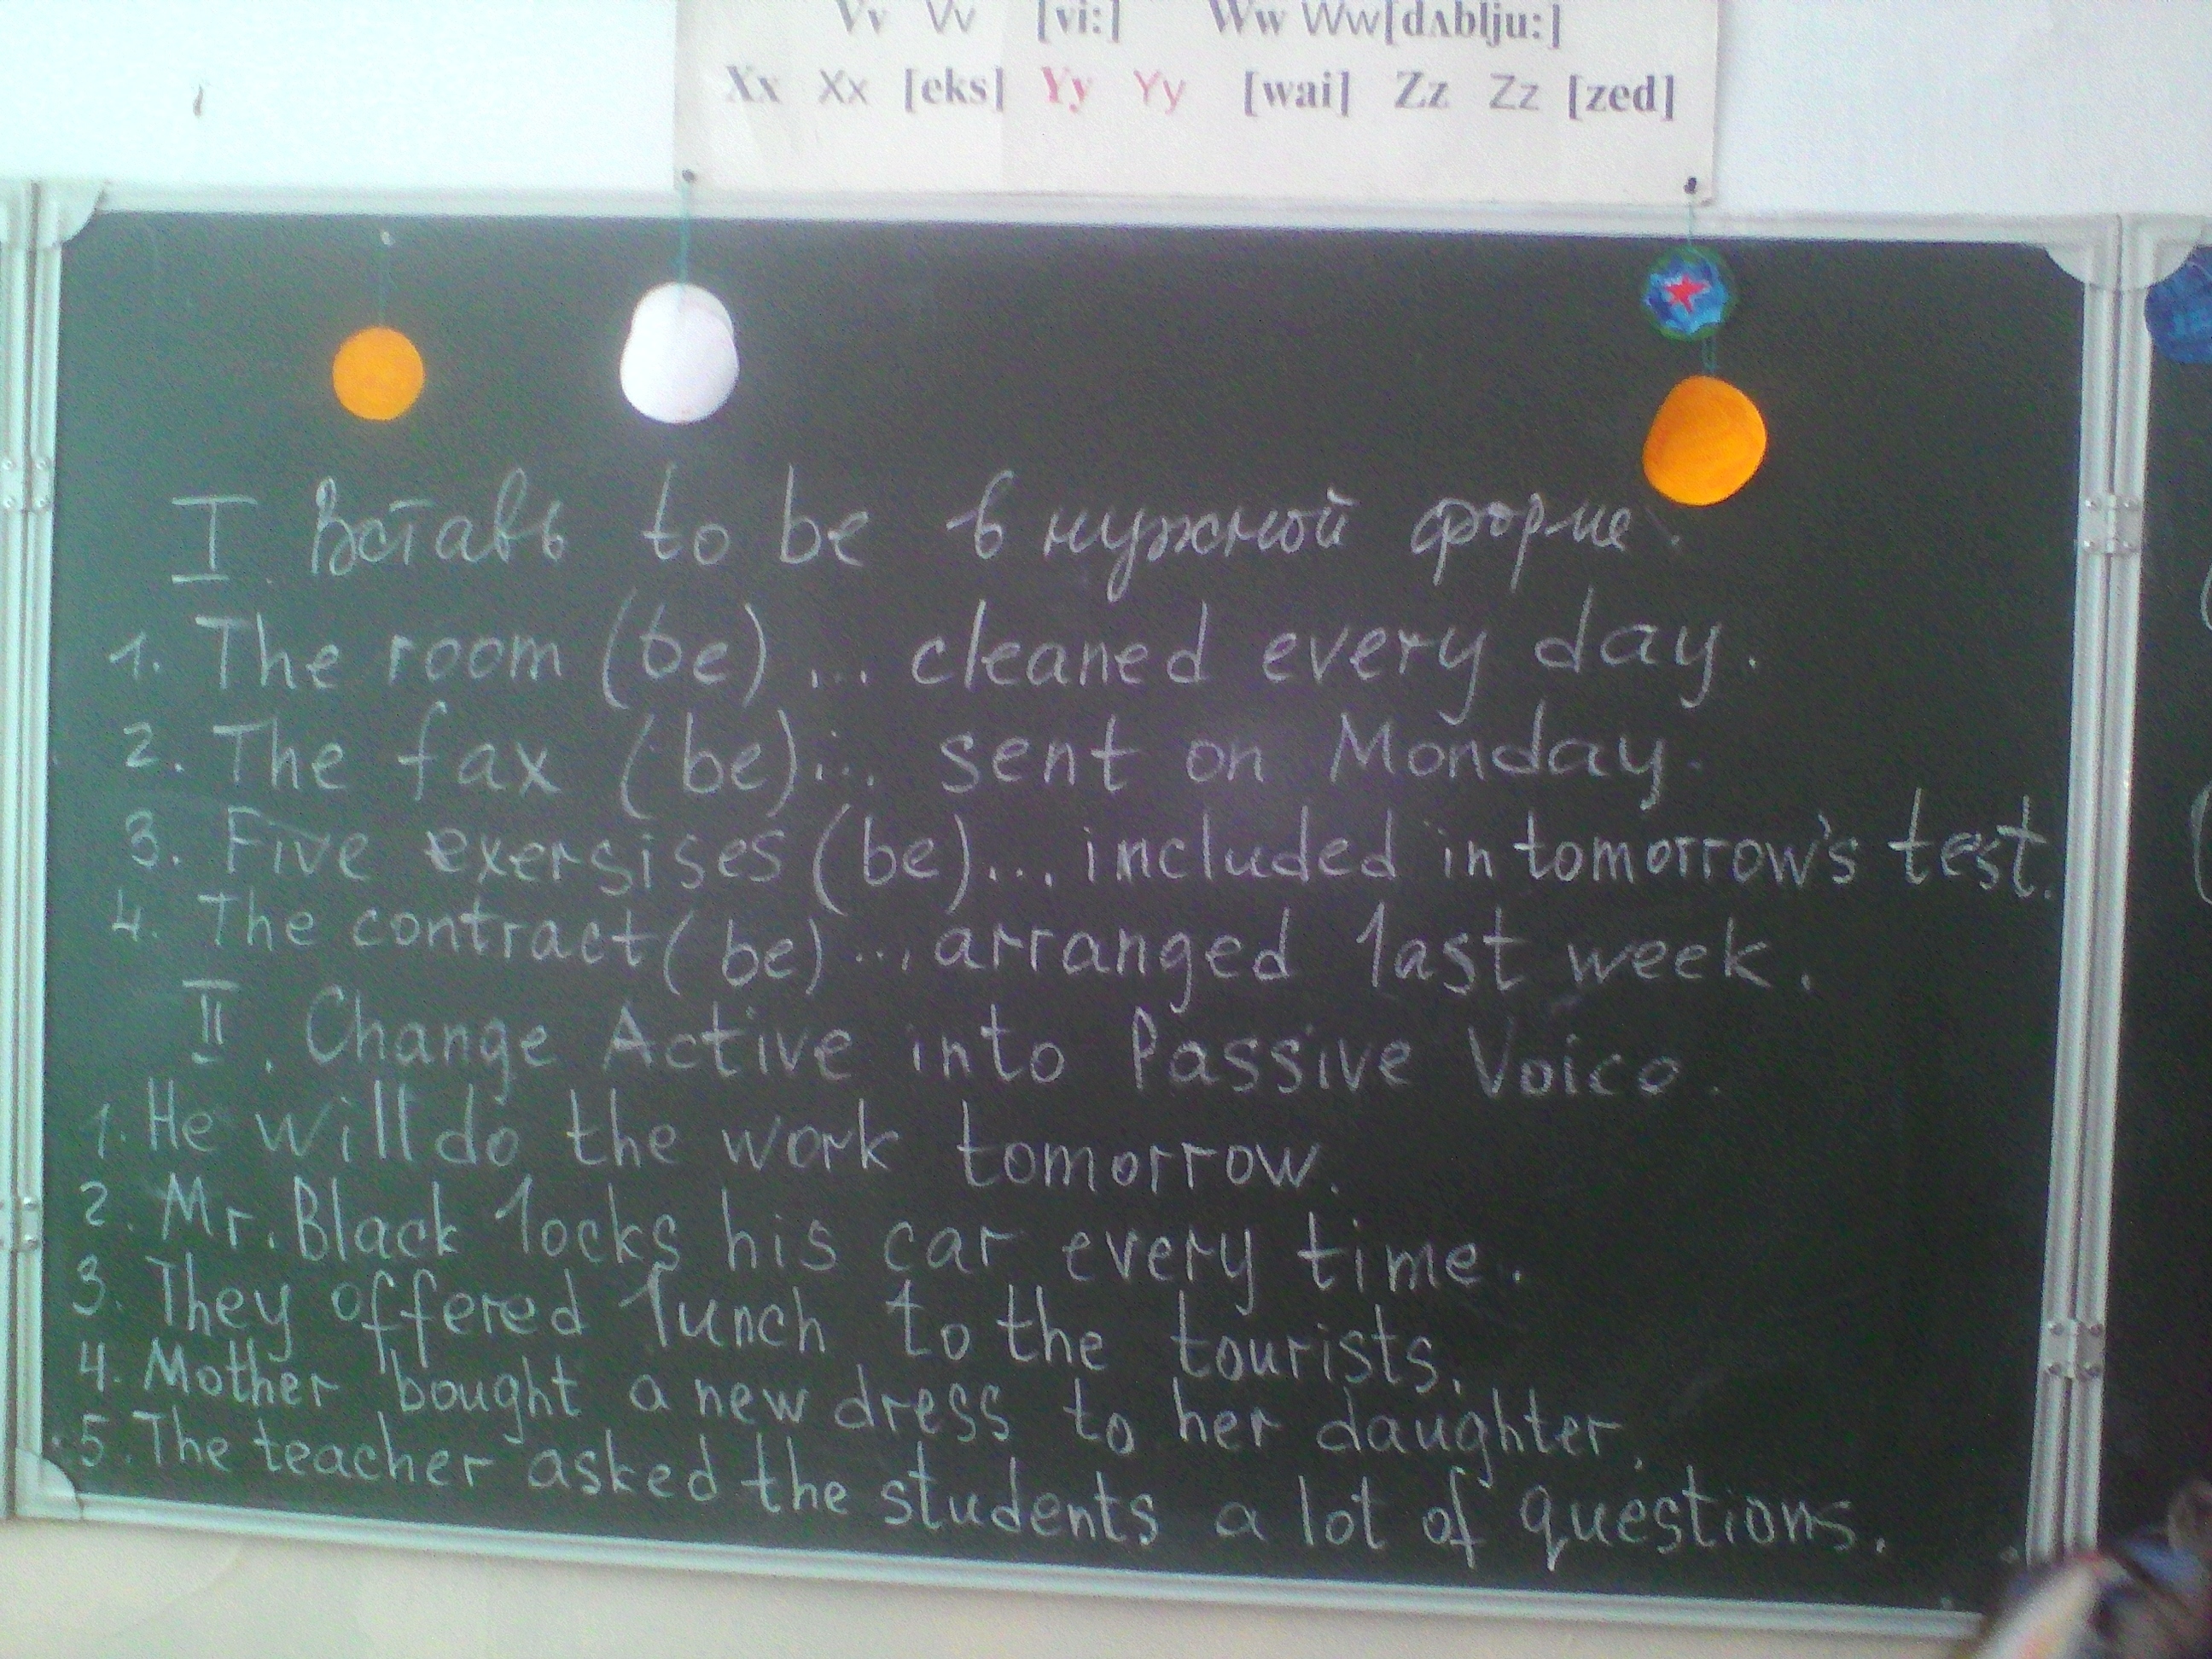 Vv Vv [vi:] Ww Ww [dʌblju:]
Xx Xx [eks] Yy Yy [wai] Zz Zz [zed]
I. Вставь to be в нужной форме.
1. The room (be) ... cleaned every day.
2. The fax (be) ... sent on Monday.
3. Five exersises (be) ... included in tomorrow's test.
4. The contract (be) ... arranged last week.
II. Change Active into Passive Voice.
1. He will do the work tomorrow.
2. Mr. Black locks his car every time.
3. They offered lunch to the tourists.
4. Mother bought a new dress to her daughter.
5. The teacher asked the students a lot of questions.